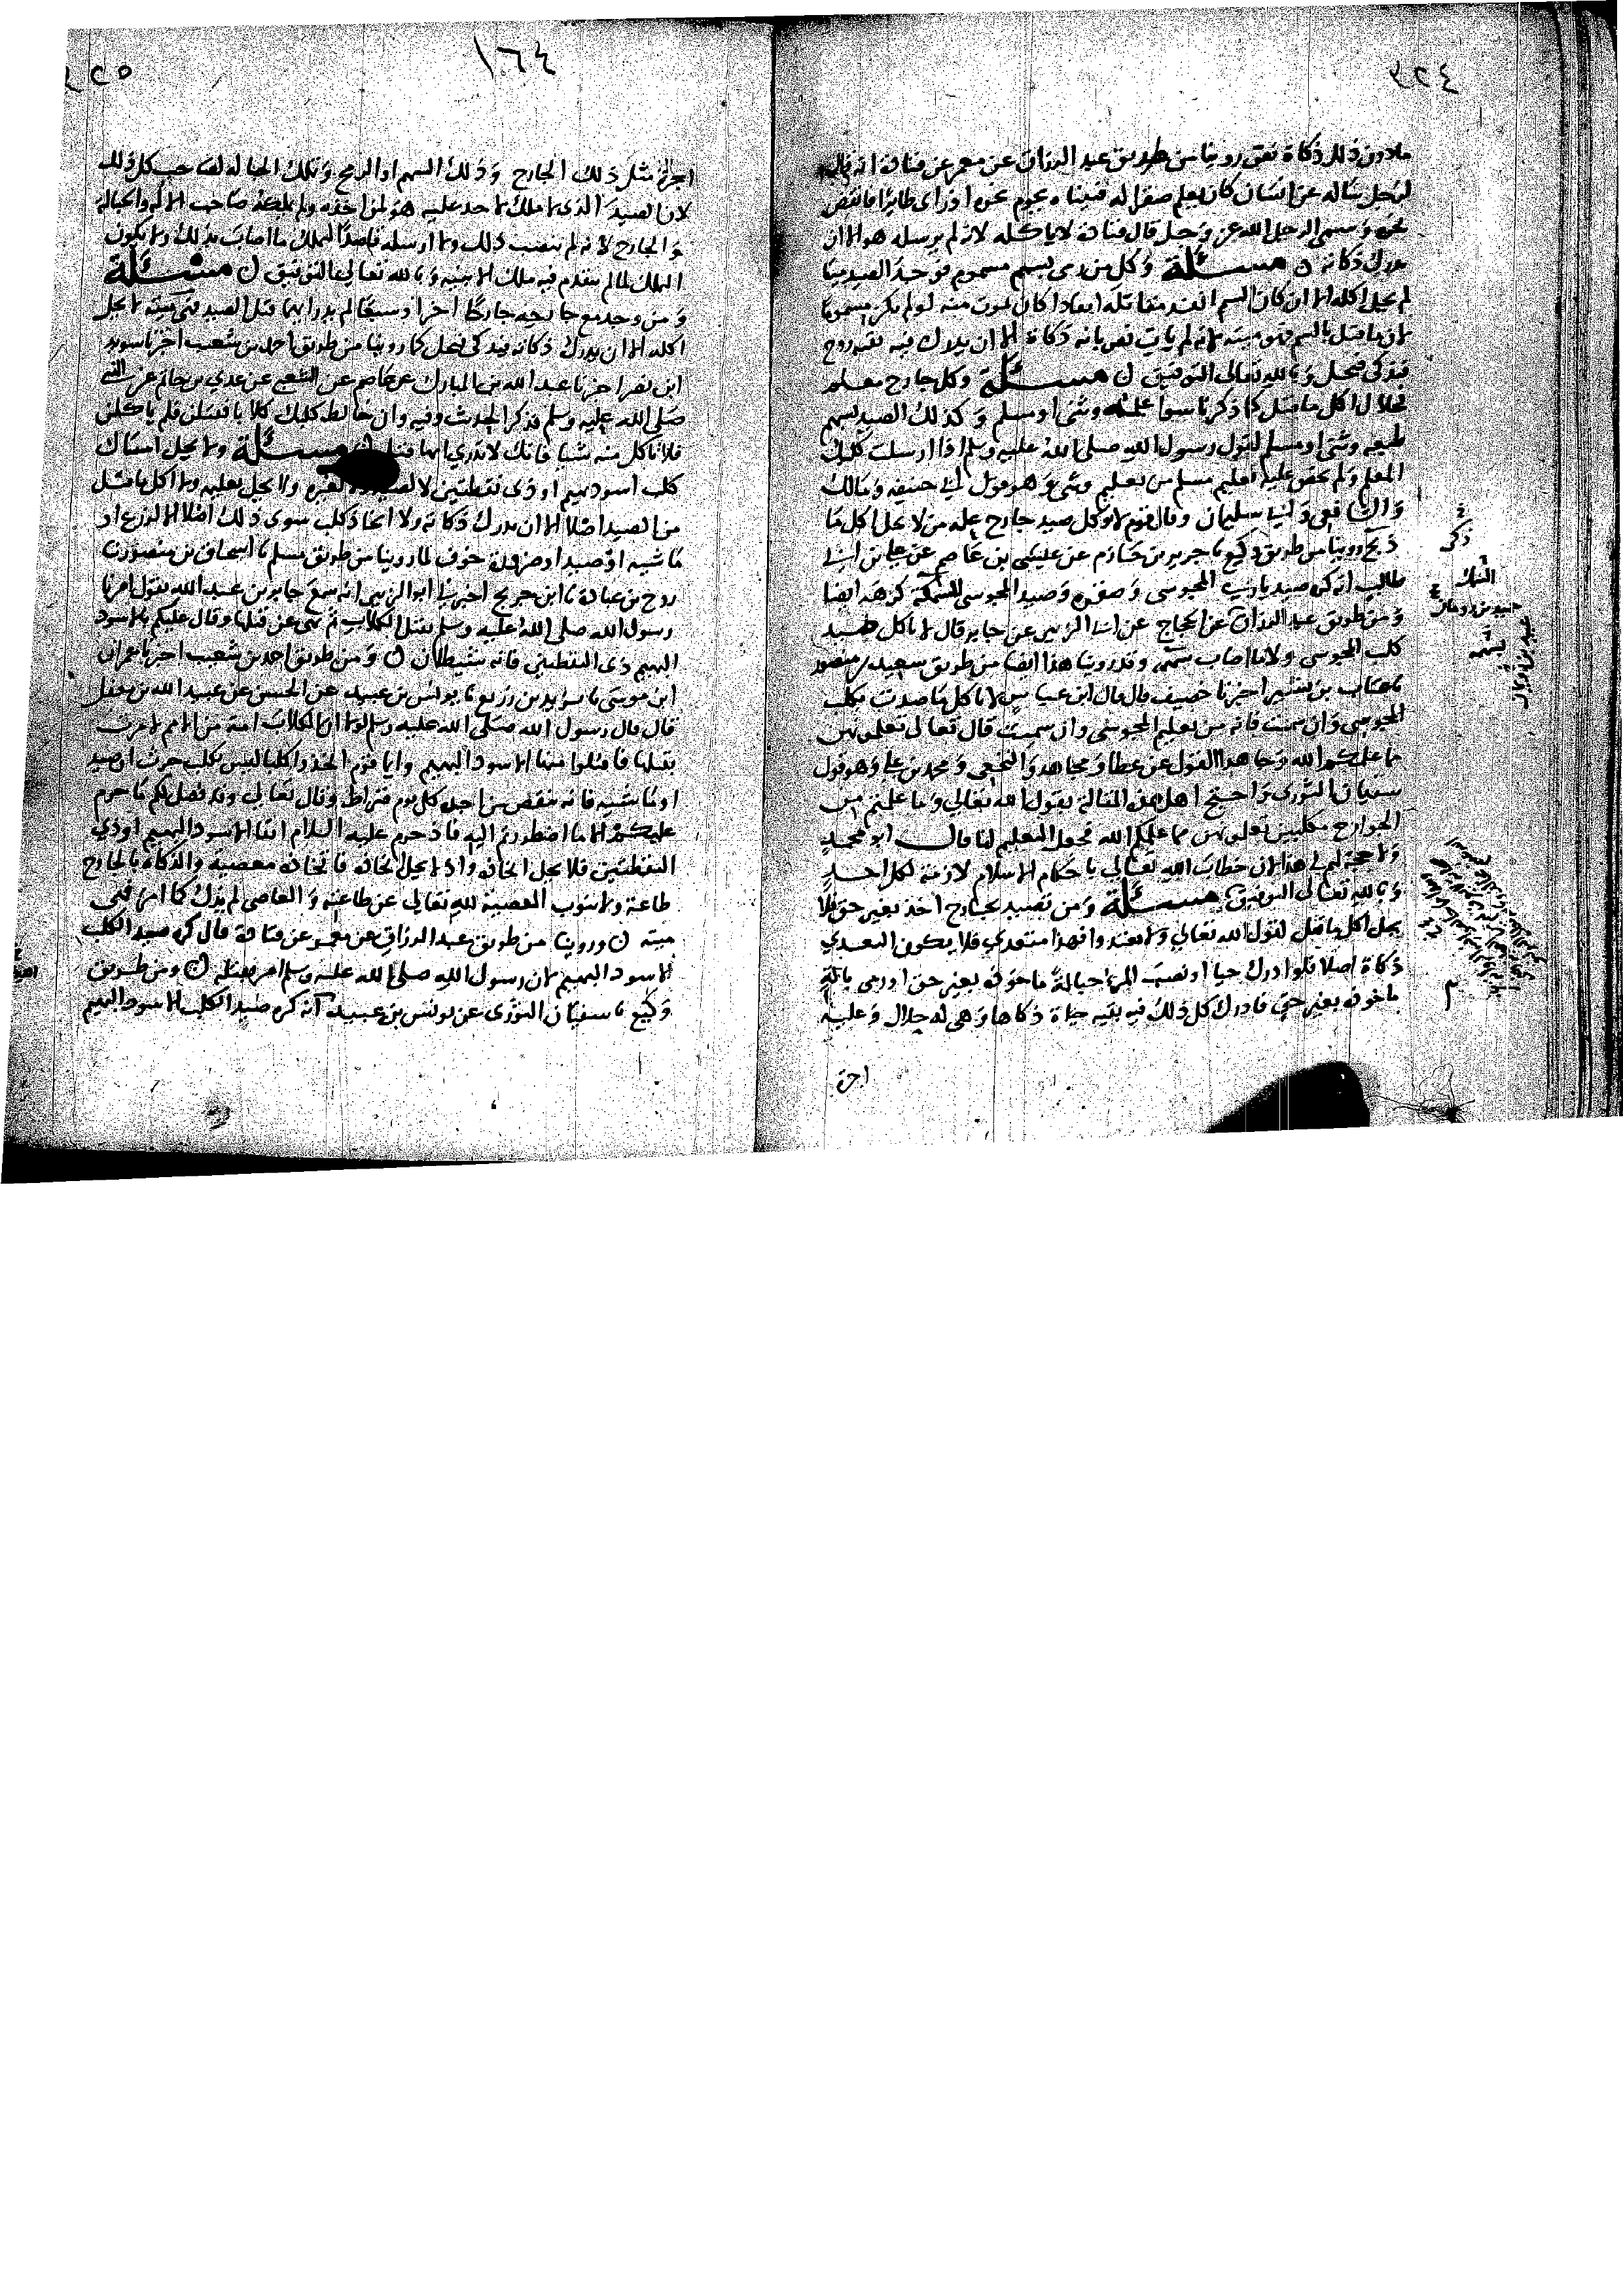 ٤٢٤
ملا دون ذلك ذكاة نعني روينا من طريق عبد الرزاق عن معمر عن قتادة انه قال
لرجل ساله عن انسان كان يعلم صقرا له فبينا هو يحوم نحن اذ راى طايرا فانقض
نحوه وسمى الرجل الله عز وجل قال قتادة لا ياكله لانه لم يرسله هو الا ان
يدرك ذكاته ن مسئلة وكل من رمى بسهم مسموم فوجد الصيد ميتا
لم يحل اكله الا ان كان السهم انفذ مقاتله انفاذا كان يموت منه لو لم يكن مسموما
لان ما قتل بالسم فهو ميتة لانه لم يات نص بانه ذكاة الا ان يدرك فيه بقية روح
فيذكى فيحل وبالله تعالى التوفيق ن مسئلة وكل جارح معلم
فحلال اكل ما قتل كما ذكرنا سوا علمه وثني او مسلم وكذلك الصيد بسهم
صنعه وثني او مسلم لقول رسول الله صلى الله عليه وسلم اذا ارسلت كلبك
المعلم ولم يخص عليه تعليم مسلم من تعليم وثني وهو قول ابي حنيفة ومالك
والشافعي وابي سليمان وقال قوم لا يوكل صيد جارح علمه من لا يحل اكل ما
ذبح روينا من طريق وكيع نا جرير بن حازم عن عيسى بن عاصم عن علي بن ابي
طالب انه كره صيد بازي المجوسي وصقره وصيد المجوسي للسمكة كرهه ايضا
ومن طريق عبد الرزاق عن الحجاج عن ابي الزبير عن جابر قال لا تاكل صيد
كلب المجوسي ولا ما اصاب سهمه وقد روينا هذا ايضا من طريق سعيد بن منصور
نا عتاب بن بشير اخبرنا خصيف قال قال ابن عباس لا تاكل ما صدت بكلب
المجوسي وان سميت فانه من تعليم المجوسي وان سميت قال تعالى تعلمونهن
مما علمكم الله وجا هذا القول عن عطا ومجاهد والنخعي ومحمد بن علي وهو قول
سفيان الثوري واحتج اهل هذه المقالة بقول الله تعالى وما علمتم من
الجوارح مكلبين تعلمونهن مما علمكم الله فجعل التعليم لنا قال ابو محمد
ولا حجة لهم في هذا لان خطاب الله تعالى باحكام الاسلام لازمة لكل احد
وبالله تعالى التوفيق مسئلة ومن تصيد بجارح اخذ بغير حق فلا
يحل اكل ما قتل لقول الله تعالى ولا تعتدوا فهذا متعدي فلا يكون التعدي
ذكاة اصلا فلو ادرك حيا او نصب المرء حبالة ماخوذة بغير حق او رمى بالة
ماخوذة بغير حق فادرك كل ذلك فيه بقية حياة ذكاها وهي له حلال وعليه
اجرة
١٦٤
٤٢٥
اجرة مثل ذلك الجارح وذلك السهم او الرمح وتلك الحبالة لصاحب كل ذلك
لان الصيد الذي لا ملك لاحد عليه هو لمن اخذه ولم يملكه صاحب الالة والحبالة
والجارح لانه لم ينصب ذلك ولا ارسله قاصدا لتملك ما اصاب بذلك ولا يكون
الملك لما لم يتقدم فيه ملك الا بنية وبالله تعالى التوفيق ن مسئلة
ومن وجد مع جارحه جارحا اخر او سبعا لم يدر ايهما قتل الصيد فهي ميتة لا يحل
اكله الا ان يدرك ذكاته فيذكى فيحل كما روينا من طريق احمد بن شعيب اخبرنا سويد
ابن نصر اخبرنا عبد الله بن المبارك عن عاصم عن الشعبي عن عدي بن حاتم عن النبي
صلى الله عليه وسلم فذكر الحديث وفيه وان خالط كلبك كلابا فقتلن فلم ياكلن
فلا تاكل منه شيا فانك لا تدري ايها قتل ن مسئلة ولا يحل امساك
كلب اسود بهيم او ذي نقطتين لا لصيد ولا لغيره ولا يحل تعليمه ولا اكل ما قتل
من الصيد اصلا الا ان يدرك ذكاته ولا اتخاذ كلب سوى ذلك اصلا الا لزرع او
ماشية او صيد او ضرورة خوف لما روينا من طريق مسلم نا اسحاق بن منصور نا
روح بن عبادة نا ابن جريج اخبرني ابو الزبير انه سمع جابر بن عبد الله يقول امرنا
رسول الله صلى الله عليه وسلم بقتل الكلاب ثم نهى عن قتلها وقال عليكم بالاسود
البهيم ذي النقطتين فانه شيطان ن ومن طريق احمد بن شعيب اخبرنا عمران
ابن موسى نا يزيد بن زريع نا يونس بن عبيد عن الحسن عن عبد الله بن مغفل
قال قال رسول الله صلى الله عليه وسلم لولا ان الكلاب امة من الامم لامرت
بقتلها فاقتلوا منها الاسود البهيم وايما قوم اتخذوا كلبا ليس بكلب حرث او صيد
او ماشية فانه ينقص من اجره كل يوم قيراط وقال تعالى وقد فصل لكم ما حرم
عليكم الا ما اضطررتم اليه فاذ حرم عليه السلام ايقا الاسود البهيم او ذي
النقطتين فلا يحل اتخاذه واذ لا يحل اتخاذه فاتخاذه معصية والذكاة بالجارح
طاعة ولا تنوب المعصية لله تعالى عن طاعته والعاصي لم يذك كما امر فهي
ميتة ن وروينا من طريق عبد الرزاق عن معمر عن قتادة قال كره صيد الكلب
الاسود البهيم لان رسول الله صلى الله عليه وسلم امر بقتله ن ومن طريق
وكيع نا سفيان الثوري عن يونس بن عبيد انه كره صيد الكلب الاسود البهيم